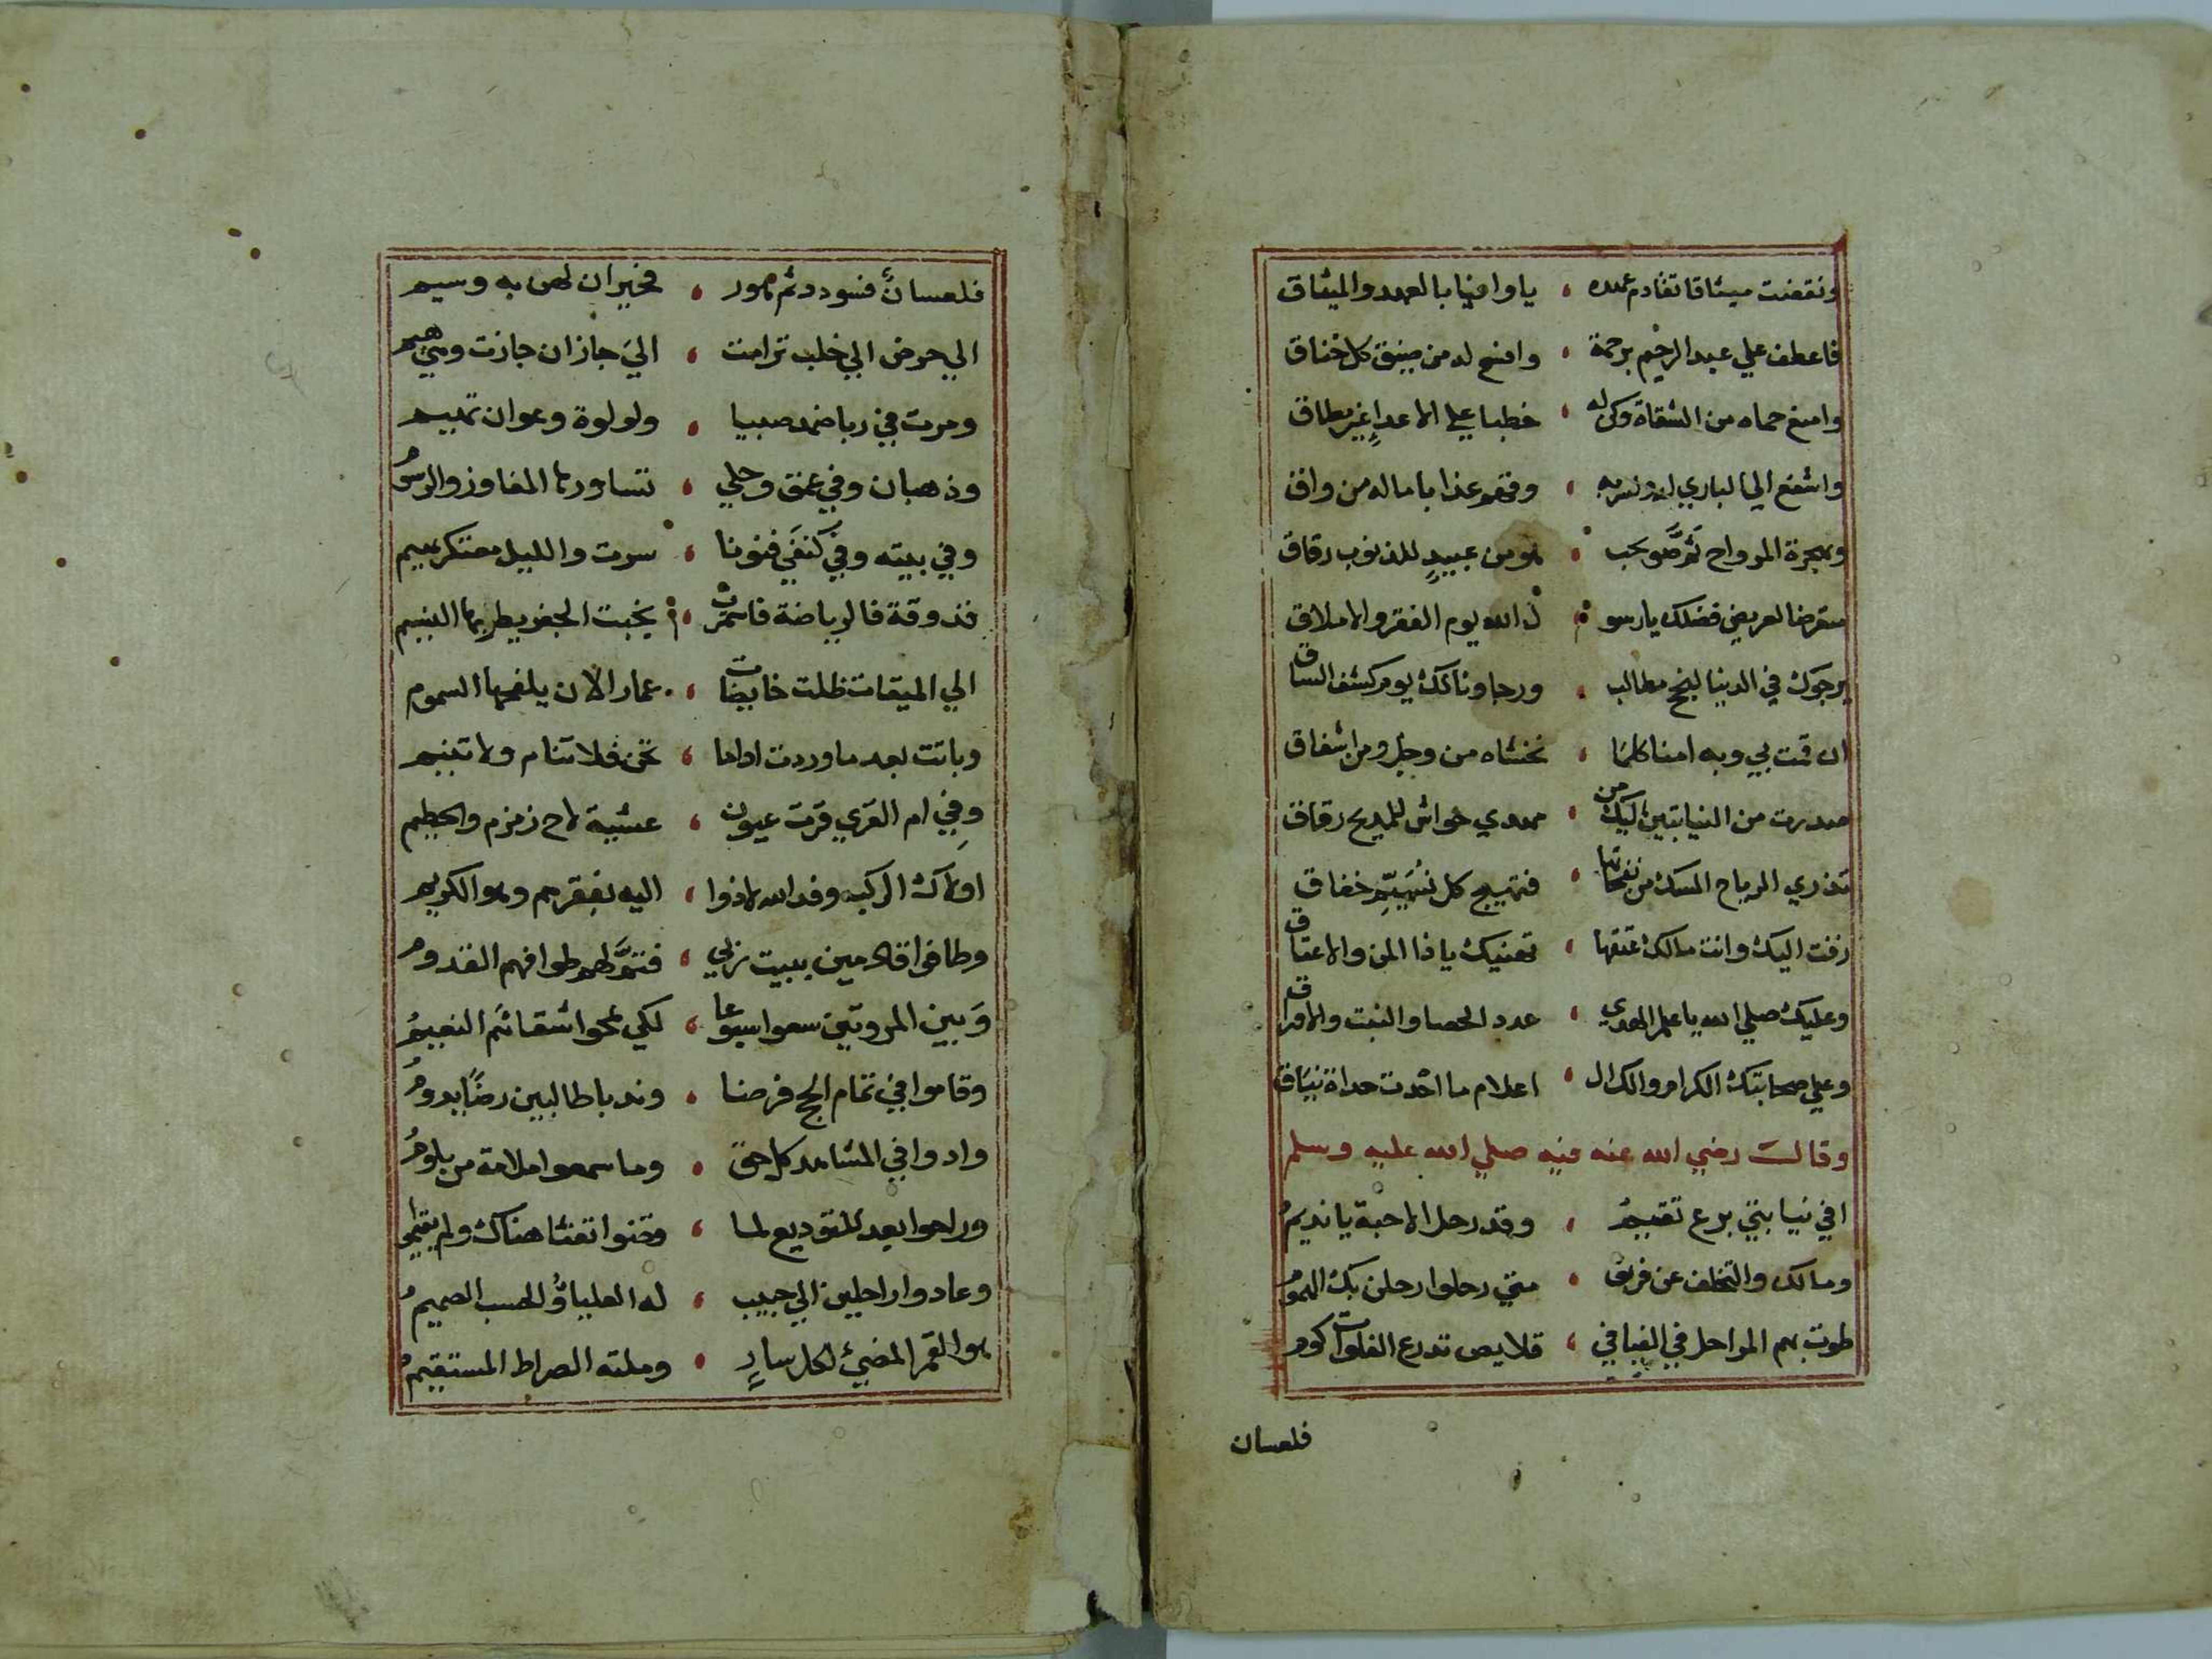 ونقضت ميثاقا تقادم عهده ، ياوافيا بالعهد والميثاق
فاعطف علي عبد الرحيم برحمة ، وافتح له من ضيق كل خناق
وامنع حماه من الشقاة وكن له ، خطبا علي الاعداء غير مطاق
واشفع الي الباري له ولسربه ، وقهم عذابا ماله من واق
وبهجرة المرواح نم وصويحب ، هو من عبيد للذنوب رقاق
متعرضا لعريض فضلك يارسو ، ل الله يوم الفقر والاملاق
يرجوك في الدنيا لنجح مطالب ، ورجاؤنا لك يوم كشف الساق
ان قمت بي وبه امنا كلما ، نخشاه من وجل ومن اشفاق
صدرت من النيابتين اليك من ، مهدي حواش للمديح رقاق
تذري الرياح المسك من نفحاتها ، فتهيج كل متيم خفاق
زفت اليك وانت مالك عتقها ، تعنيك ياذا المن والاعتاق
وعليك صلي الله ياعلم الهدي ، عدد الحصا والنبت والاوراق
وعلي صحابتك الكرام والك ال ، اعلام ما احدت حداة نياق
وقال رضي الله عنه فيه صلي الله عليه وسلم
افي نيابتي برع تقيم ، وقد رحل الاحبة يانديم
ومالك والتخلف عن فريق ، متي رحلوا رحلن بك الهموم
طوت بهم المراحل في الفيافي ، قلايص تدرع الفلوات كوم
فلعسان
فلعسان فسودد ثم مور ، فخيران لهن به وسيم
الي حرض الي خلب ترامت ، الي جازان جازت وهي هيم
ومرت في رباضمد صبيا ، ولولوة وعوان تهيم
وذهبان وفي عمق وحلي ، تساورها المفاوز والرسوم
وفي يبته وفي كنفي قنونا ، سرت والليل معتكر بهيم
فذوقة فالرياضة فاستمرت ، بخبت الجفر يطربها النسيم
الي الميقات ظلت خايضات ، غمار الان يلفحها السموم
وباتت بعد ما وردت اداما ، تحن فلا تنام ولا تنيم
وفي ام القري قرت عيون ، عشية لاح زمزم والحطيم
اولاك الركب وفد الله لاذوا ، اليه بفقرهم وهو الكريم
وطافوا قادمين ببيت ربي ، فتم لهم طوافهم القدوم
وبين المروتين سعوا سبوعا ، لكي يمحوا شقائهم النعيم
وقاموا في تمام الحج فرضا ، وندبا طالبين رضا يدوم
وادوا في المشاعد كل حق ، وما سمعوا ملامة من يلوم
وراحوا بعد للتوديع لما ، قضوا تفثا هناك ولم يقيموا
وعادوا راحلين الي حبيب ، له العلياء والحسب الصميم
هو القمر المضيئ لكل سار ، وملته الصراط المستقيم